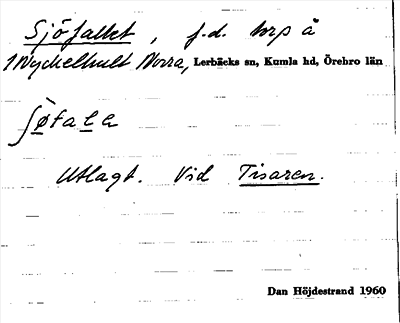 Sjöfallet, f.d. torp å
1 Nyckelhult Norra, Lerbäcks sn, Kumla hd, Örebro län
ʃø̀fala
Utlagt. Vid Tisaren.
Dan Höjdestrand 1960